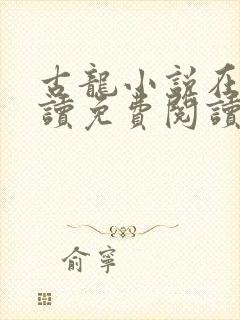 古龍小說在
讀免費閱讀
俞寧